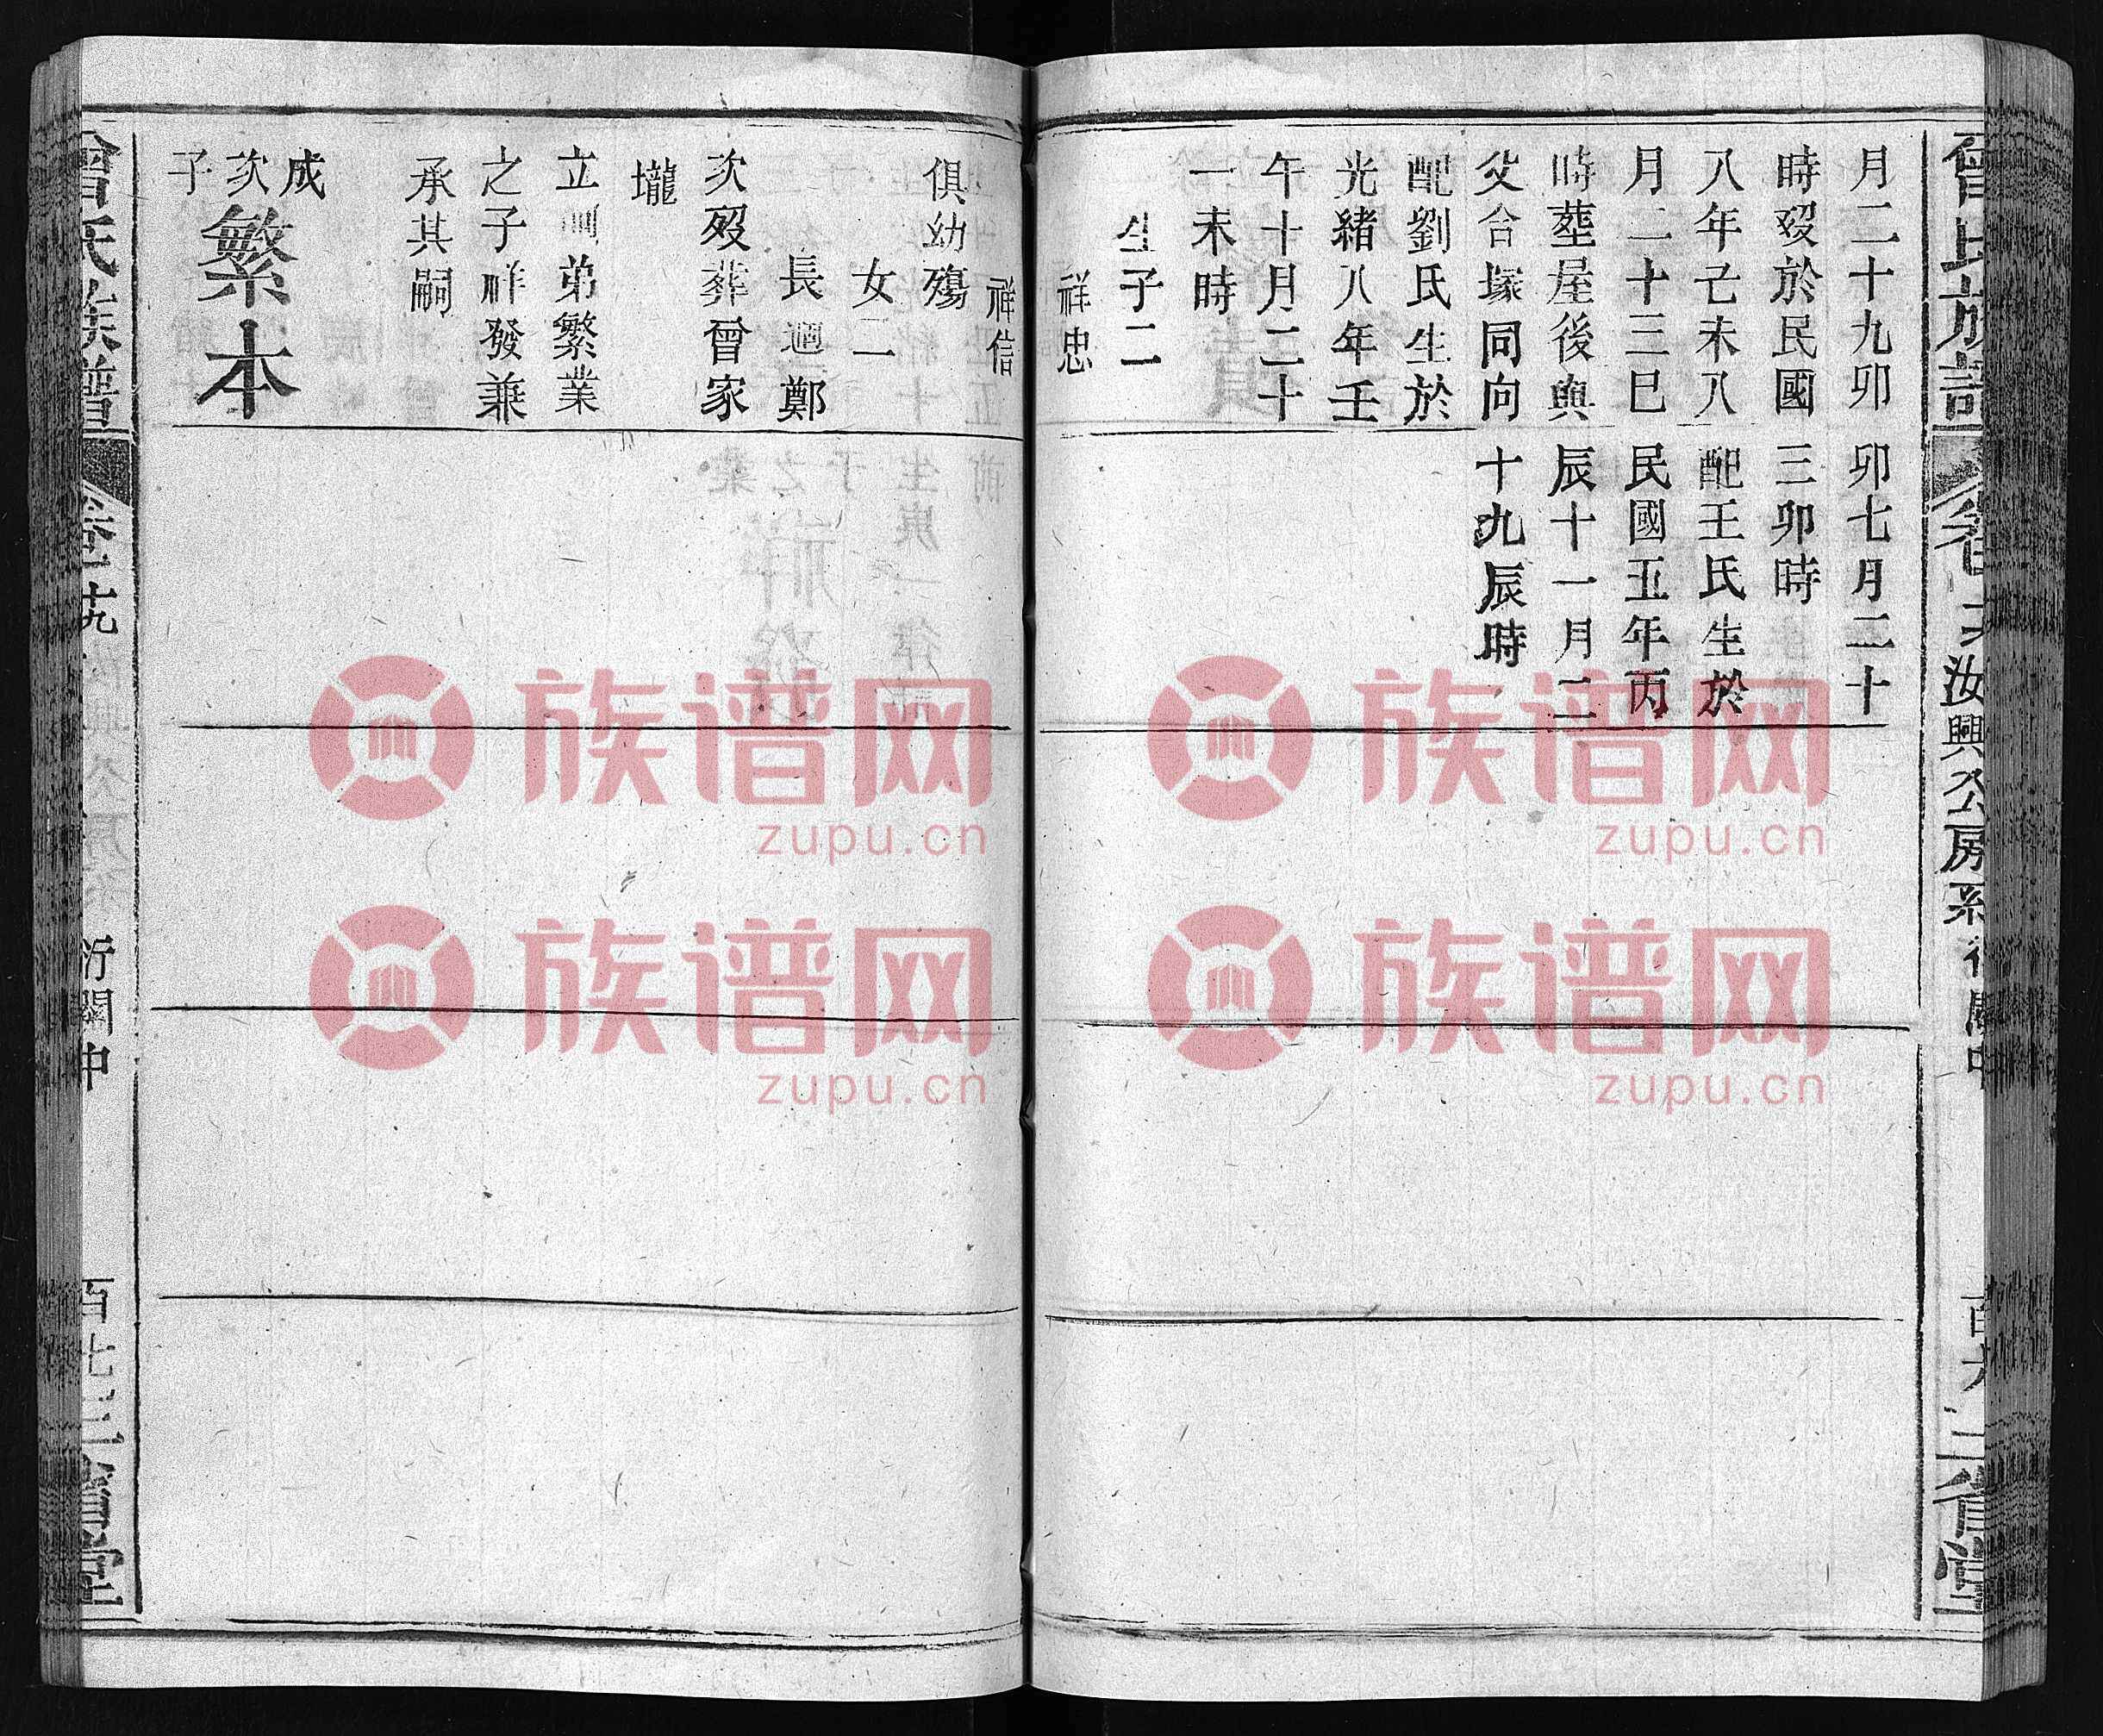 曾氏族譜
汝興公房系衍關中
三省堂
月二十九卯
時歿於民國
八年己未八
月二十三巳
時葬屋後與
父合塚同向
配劉氏生於
光緒八年壬
午十月二十
一未時
生子二
祥忠
卯七月二十
三卯時
配王氏生於
民國五年丙
辰十一月二
十九辰時
祥信
俱幼殤
女二
長適鄭
次歿葬曾家
壠
立嗣弟繁業
之子祥發兼
承其嗣
成
次
子
繁本
曾氏族譜
卷十九
衍關中
百七
三省堂
族谱网
zupu.cn
族谱网
zupu.cn
族谱网
zupu.cn
族谱网
zupu.cn